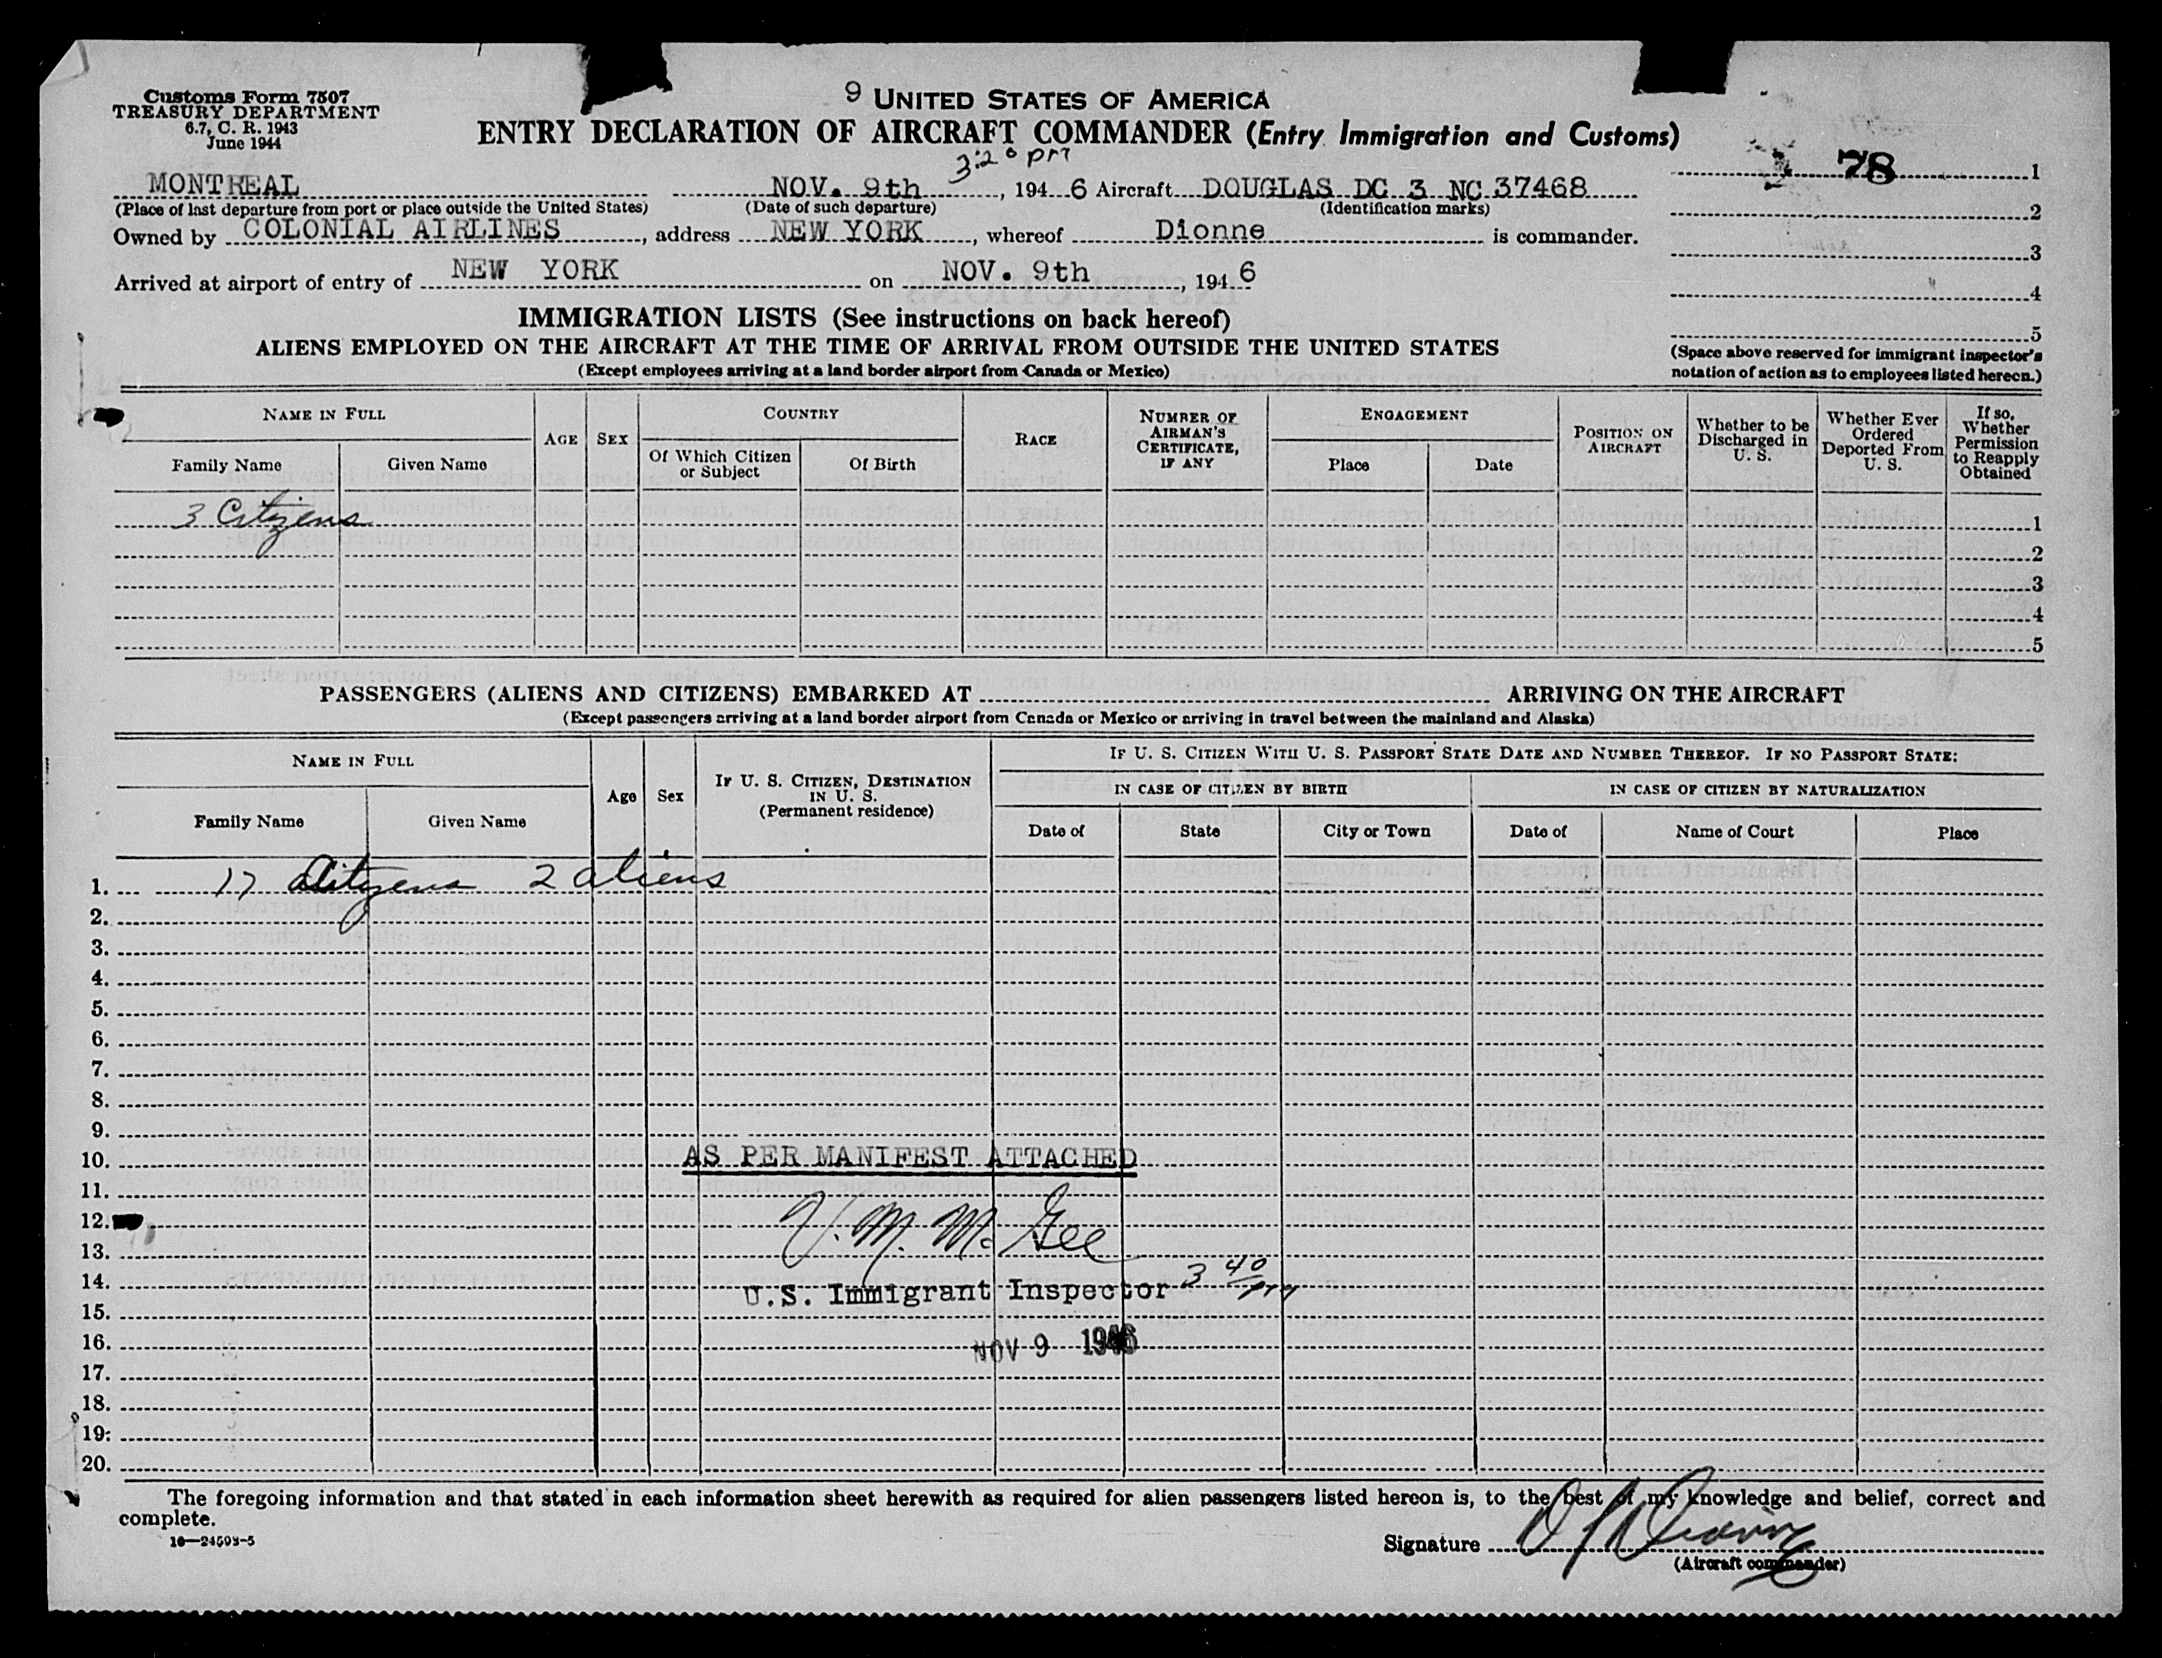 Customs Form 7507
TREASURY DEPARTMENT
6.7, C. R. 1943
June 1944
9 UNITED STATES OF AMERICA
ENTRY DECLARATION OF AIRCRAFT COMMANDER (Entry Immigration and Customs)
3:20 pm
78 1
MONTREAL NOV. 9th, 194 6 Aircraft DOUGLAS DC 3 NC 37468
(Place of last departure from port or place outside the United States) (Date of such departure) (Identification marks)
2
Owned by COLONIAL AIRLINES, address NEW YORK, whereof Dionne is commander.
3
Arrived at airport of entry of NEW YORK on NOV. 9th, 194 6
4
IMMIGRATION LISTS (See instructions on back hereof)
5
ALIENS EMPLOYED ON THE AIRCRAFT AT THE TIME OF ARRIVAL FROM OUTSIDE THE UNITED STATES
(Except employees arriving at a land border airport from Canada or Mexico)
(Space above reserved for immigrant inspector's
notation of action as to employees listed hereon.)
NAME IN FULL
Family Name Given Name
AGE SEX
COUNTRY
Of Which Citizen
or Subject
Of Birth
RACE
NUMBER OF
AIRMAN'S
CERTIFICATE,
IF ANY
ENGAGEMENT
Place Date
POSITION ON
AIRCRAFT
Whether to be
Discharged in
U. S.
Whether Ever
Ordered
Deported From
U. S.
If so,
Whether
Permission
to Reapply
Obtained
3 Citizens 1
2
3
4
5
PASSENGERS (ALIENS AND CITIZENS) EMBARKED AT ARRIVING ON THE AIRCRAFT
(Except passengers arriving at a land border airport from Canada or Mexico or arriving in travel between the mainland and Alaska)
NAME IN FULL
Family Name Given Name
Age Sex
IF U. S. CITIZEN, DESTINATION
IN U. S.
(Permanent residence)
IF U. S. CITIZEN WITH U. S. PASSPORT STATE DATE AND NUMBER THEREOF. IF NO PASSPORT STATE:
IN CASE OF CITIZEN BY BIRTH IN CASE OF CITIZEN BY NATURALIZATION
Date of State City or Town Date of Name of Court Place
1. 17 Citizens 2 aliens
2.
3.
4.
5.
6.
7.
8.
9.
10. AS PER MANIFEST ATTACHED
11.
12.
V. M. McGee
13.
14. U.S. Immigrant Inspector 3 40 pm
15.
16. NOV 9 1946
17.
18.
19.
20.
The foregoing information and that stated in each information sheet herewith as required for alien passengers listed hereon is, to the best of my knowledge and belief, correct and
complete.
16—24593-5
Signature
(Aircraft commander)